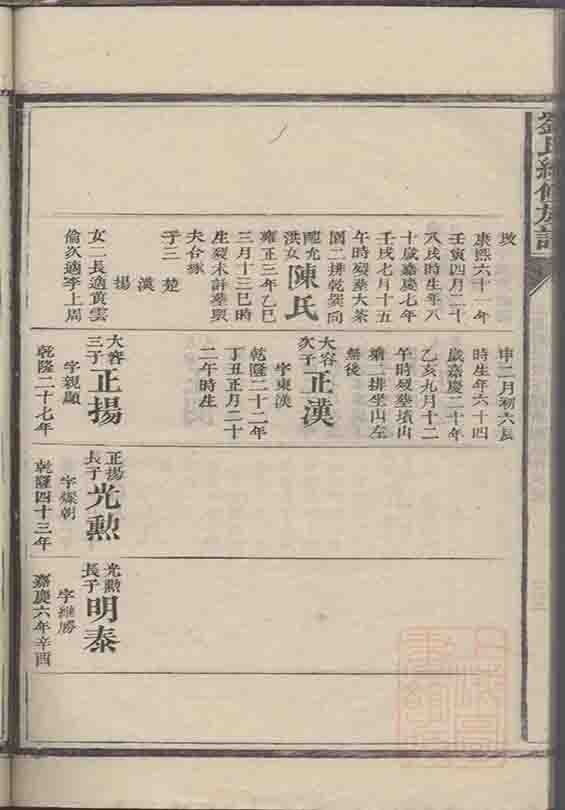 劉氏續修族譜
坟
康熙六十一年
壬寅四月二十
八戌時生年八
十歲嘉慶七年
壬戌七月十五
午時歿塟大茶
園二排乾巽向
配允洪女陳氏
雍正三年乙巳
三月十三巳時
生歿未詳塟與
夫合塚
子三 楚
漢
揚
女二長適黃雲
倫次適李上周
申二月初六辰
時生年六十四
歲嘉慶二十年
乙亥九月十二
午時歿塟墳山
二排坐山左
無後
大容次子正漢
字東漢
乾隆二十二年
丁丑正月二十
二午時生
大容三子正揚
字親顯
乾隆二十七年
正揚長子光勲
字燦朝
乾隆四十三年
光勲長子明泰
字維勝
嘉慶六年辛酉